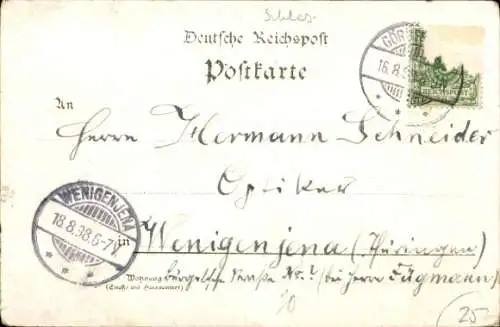 Schles.
Deutsche Reichspost
Postkarte
GÖR
16.8.9
REICHSPOST
An
Herrn Hermann Schneider
Optiker
WENIGENJENA
18.8.98.6-7N.
in Wenigenjena (Thüringen)
Wohnung Bürgelsche Straße No. bei Herrn Fügmann
(Straße und Hausnummer)
25